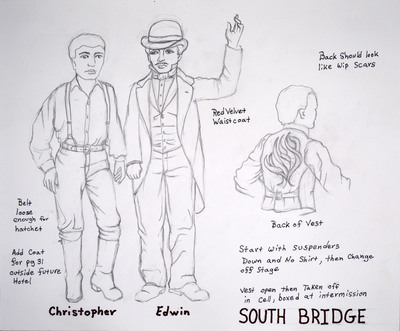 Back Should look
like Wip Scars
Red Velvet
Waistcoat
Belt
loose
enough for
hatchet
Add Coat
for pg 31
outside future
Hotel
Back of Vest
Start with suspenders
Down and No Shirt, then Change
off Stage
Vest open then Taken off
in Cell, boxed at intermission
Christopher
Edwin
SOUTH BRIDGE